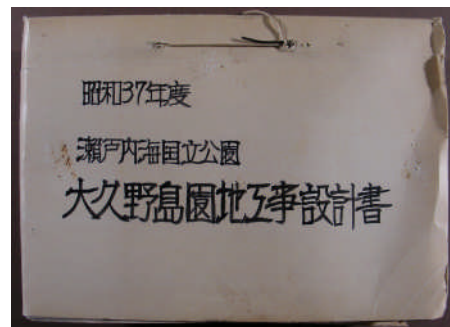 昭和37年度
瀬戸内海国立公園
大久野島園地工事設計書